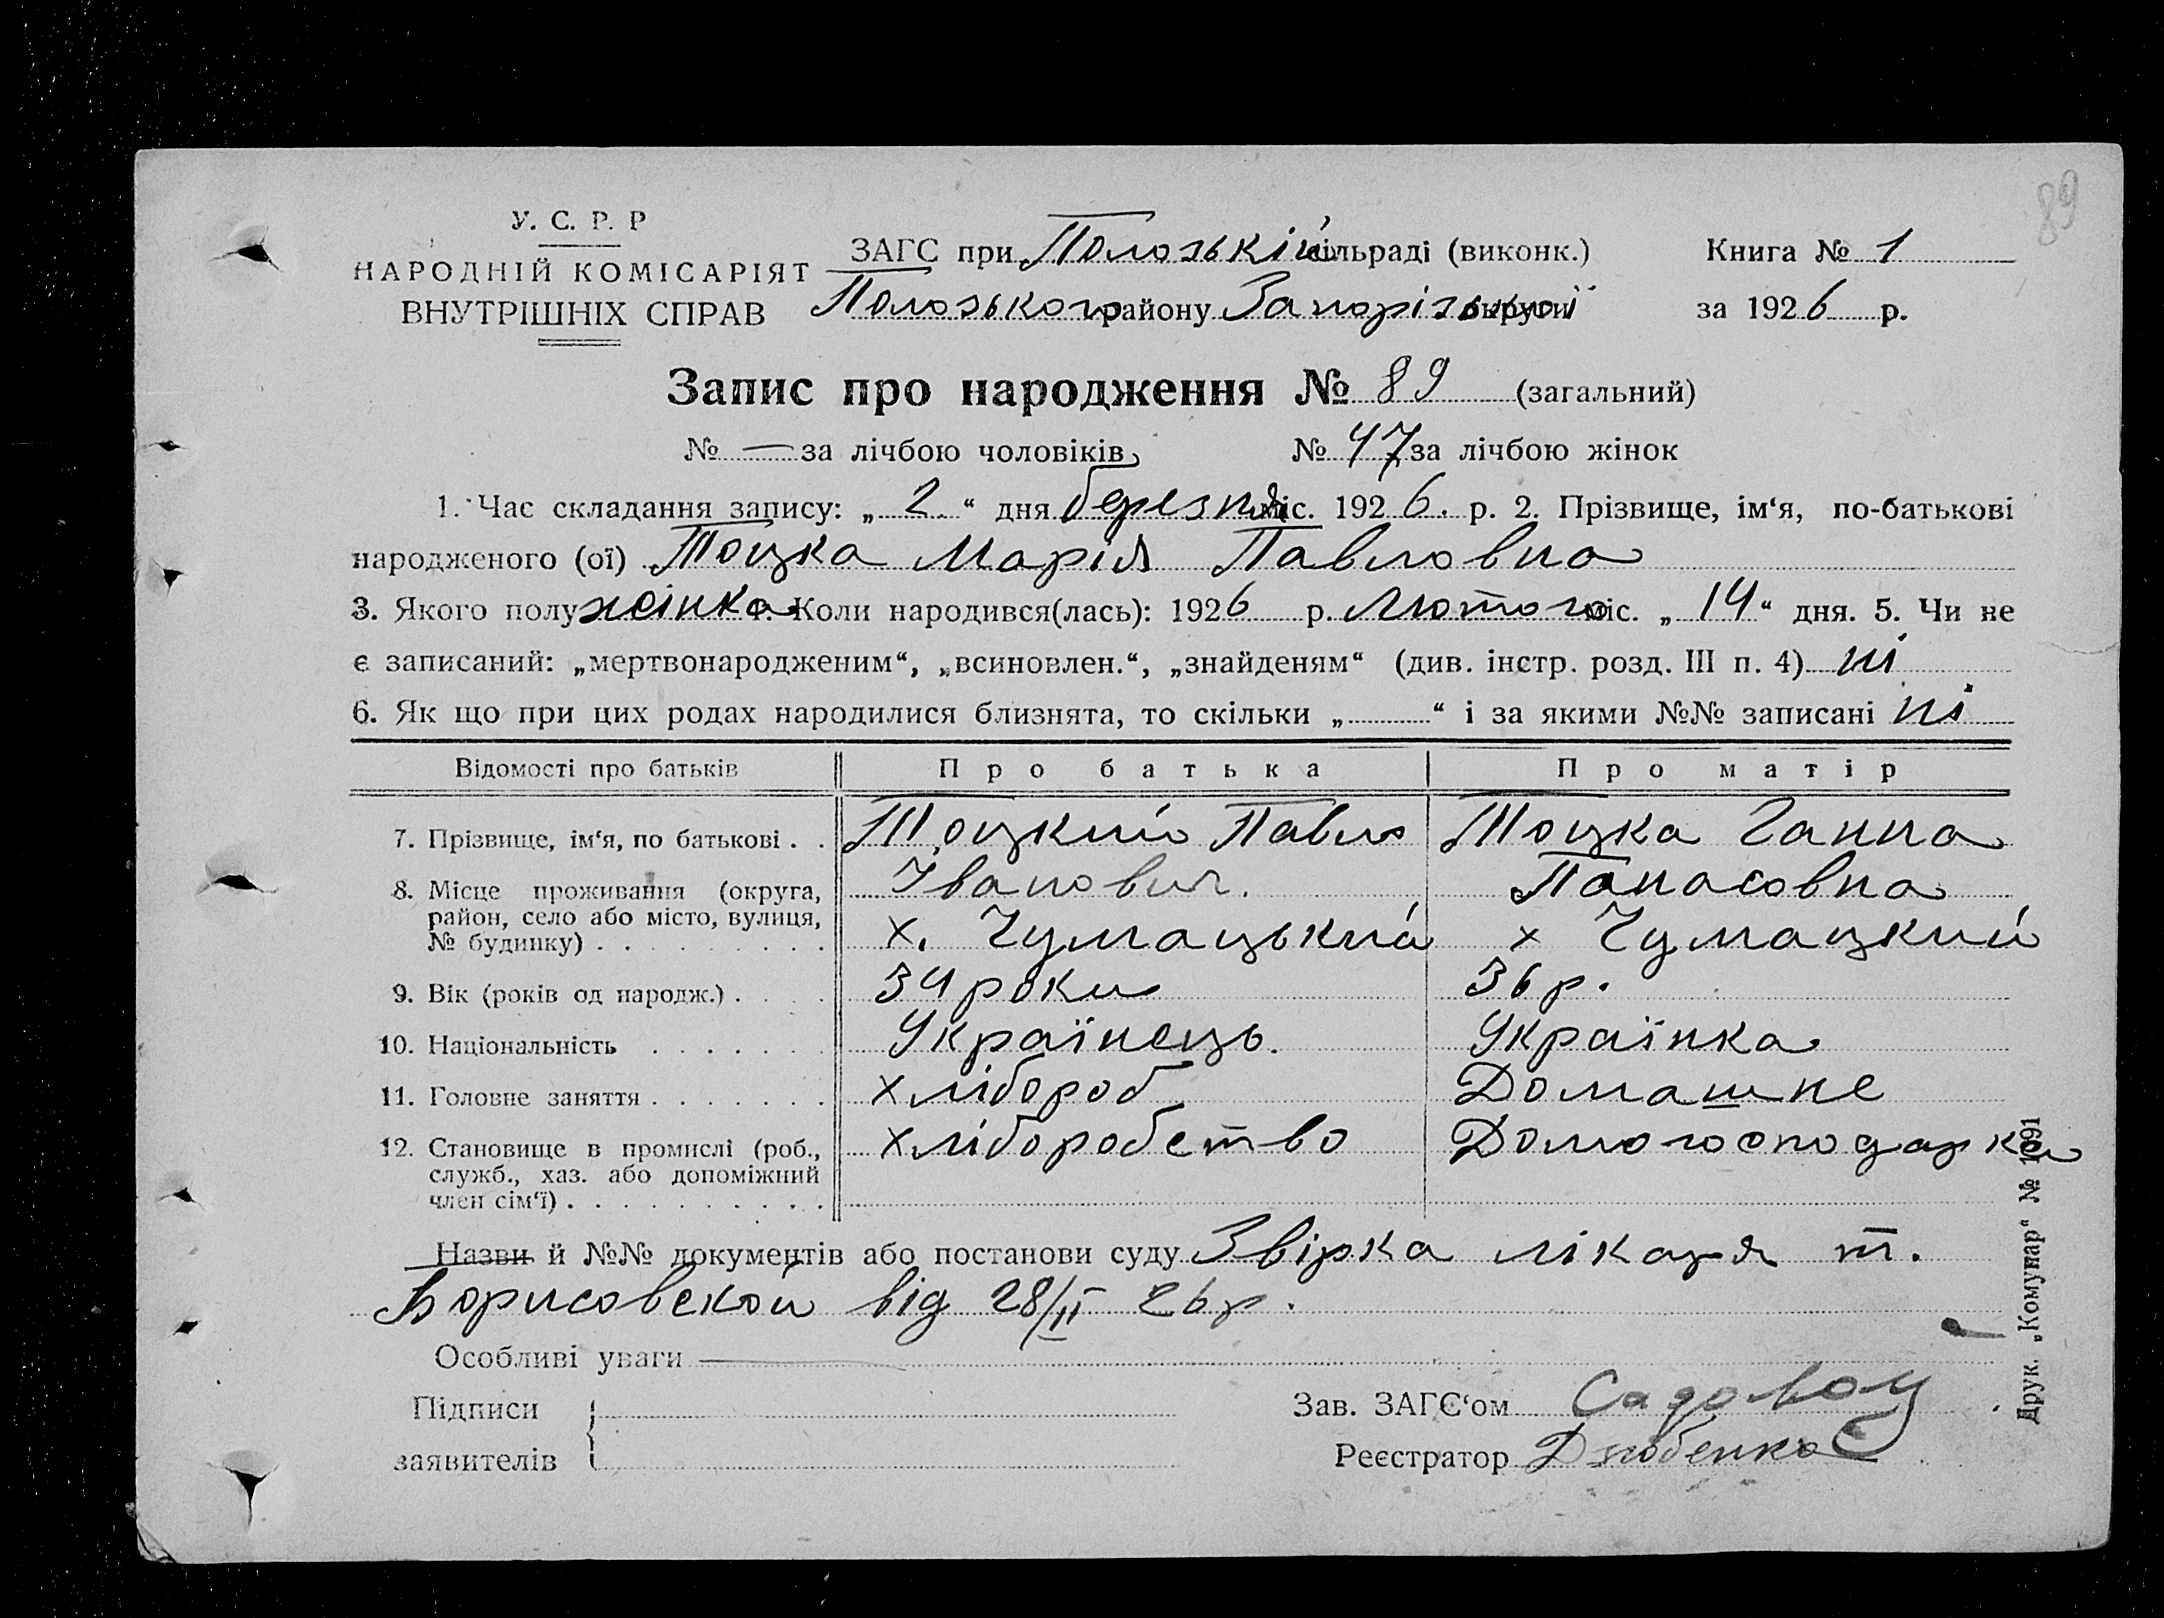 89
У. С. Р. Р
НАРОДНІЙ КОМІСАРІЯТ
ВНУТРІШНІХ СПРАВ
ЗАГС при Полозькій сільраді (виконк.)
Полозького району Запорізької округи
Книга № 1
за 1926 р.
Запис про народження № 89 (загальний)
№ — за лічбою чоловіків, № 47 за лічбою жінок
1. Час складання запису: „ 2 “ дня березня міс. 1926. р. 2. Прізвище, ім‘я, по-батькові
народженого (ої) Тоцка Марія Павловна
3. Якого полу жінка 4. Коли народився(лась): 1926 р. Лютого міс. „ 14 “ дня. 5. Чи не
є записаний: „мертвонародженим“, „всиновлен.“, „знайденям“ (див. інстр. розд. III п. 4) ні
6. Як що при цих родах народилися близнята, то скільки „ “ і за якими №№ записані ні
Відомості про батьків Про батька Про матір
7. Прізвище, ім‘я, по батькові . . Тоцкий Павло Тоцка Ганна
Іванович. Панасовна
8. Місце проживання (округа,
район, село або місто, вулиця,
№ будинку) . . . . . . . . . х. Чумацький х Чумацкий
9. Вік (років од народж.) . . . . 34 роки 36 р.
10. Національність . . . . . . . Українець. Українка
11. Головне заняття . . . . . . . хлібороб Домашнє
12. Становище в промислі (роб., хліборобство Домогосподарка
служб., хаз. або допоміжний
член сім‘ї) . . . . . . . . . .
Назви й №№ документів або постанови суду Звірка лікаря т.
Борисовской від 28/II 26 р.
Особливі уваги —
Підписи
заявителів
Зав. ЗАГС‘ом Садовой
Реєстратор
Друк. „Комунар“ № 1691